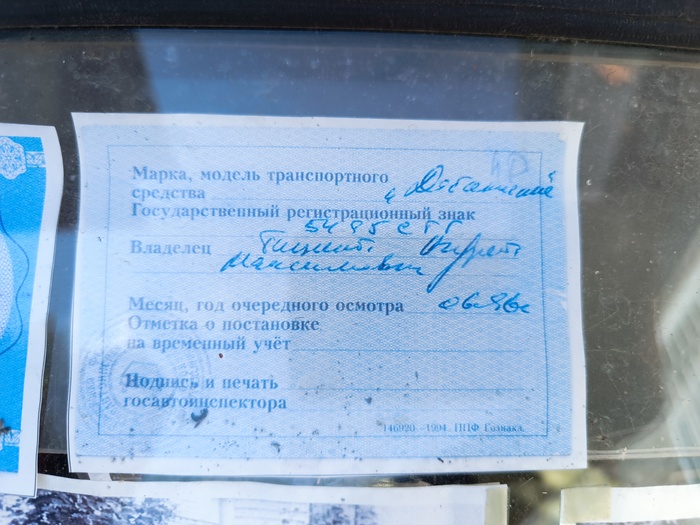 Марка, модель транспортного
средства
Государственный регистрационный знак
Владелец
Максимович
Месяц, год очередного осмотра 06.96г
Отметка о постановке
на временный учёт
Подпись и печать
госавтоинспектора
146920 - 1994. ППФ Гознака.